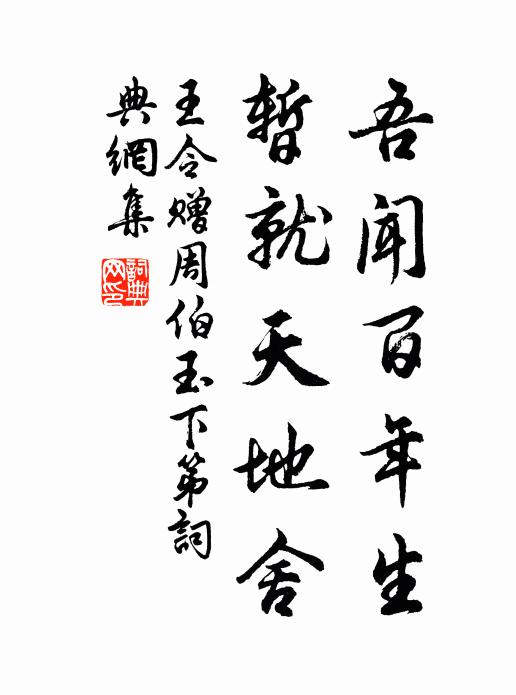 吾闻百年生
暂就天地舍
王令赠周伯玉下第詞
典網集
詞典
网印